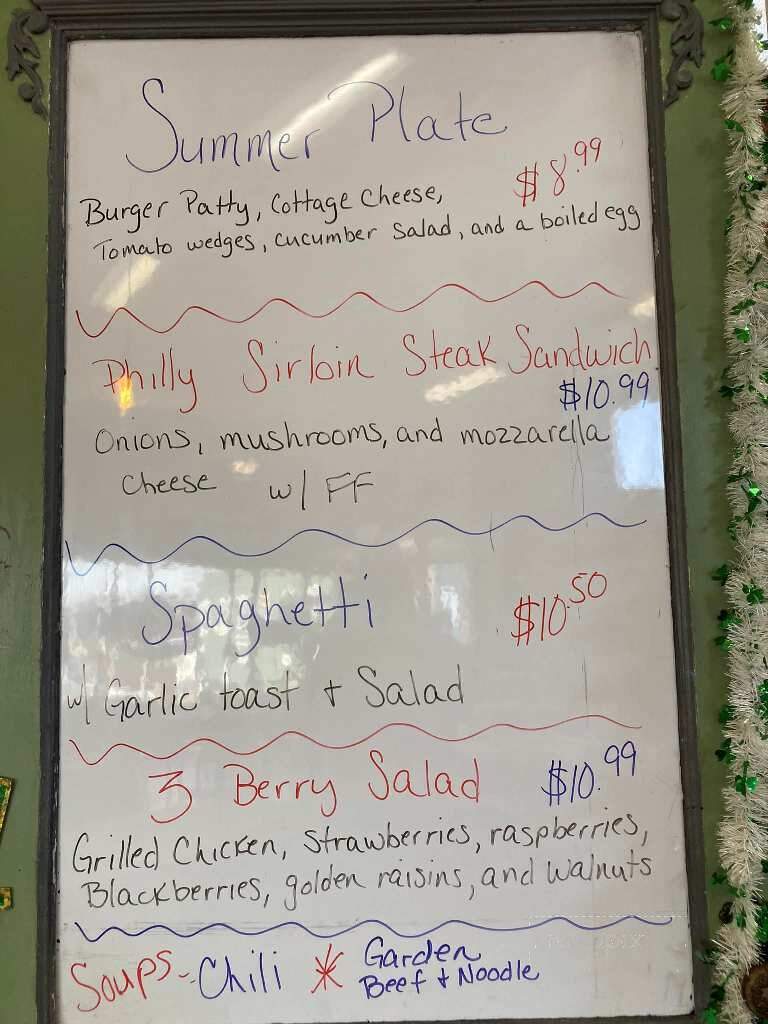 Summer Plate
$8.99
Burger Patty, Cottage Cheese,
Tomato wedges, cucumber salad, and a boiled egg
Philly Sirloin Steak Sandwich
$10.99
Onions, mushrooms, and mozzarella
Cheese w/ FF
Spaghetti $10.50
w/ Garlic toast + Salad
3 Berry Salad $10.99
Grilled Chicken, Strawberries, raspberries,
Blackberries, golden raisins, and walnuts
Soups - Chili * Garden
Beef + Noodle